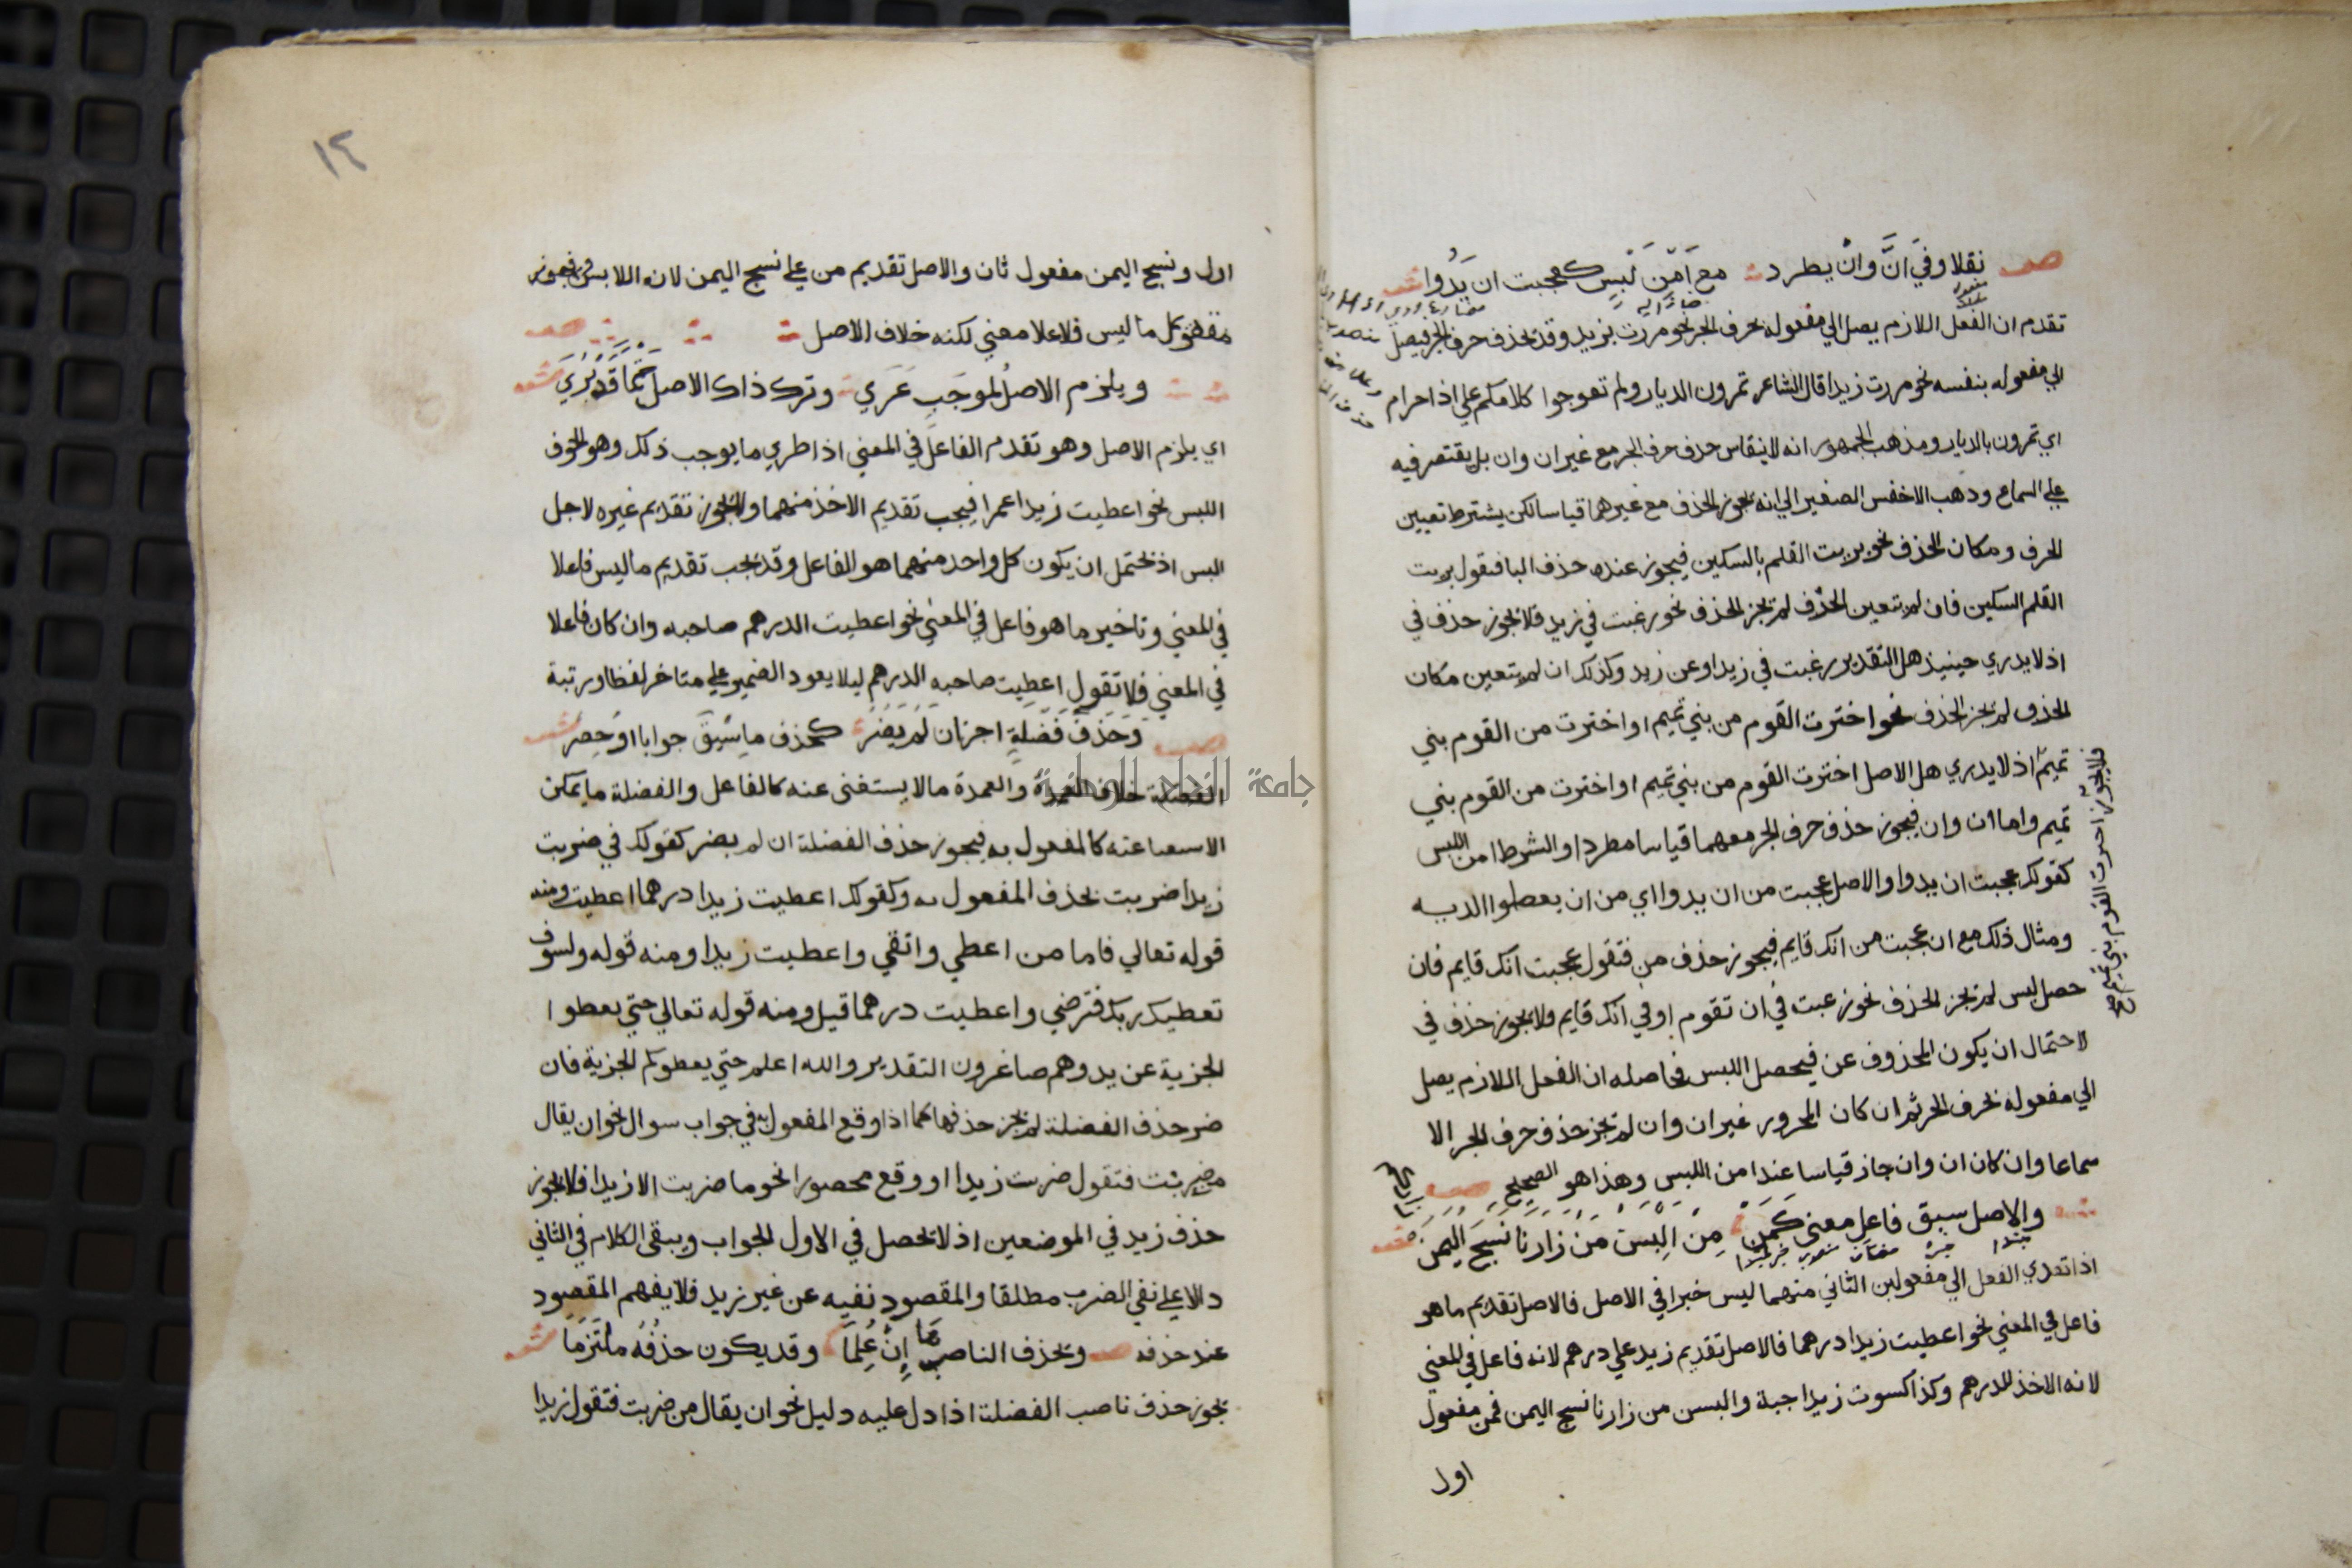 صـ نقلا وفي أنَّ وأنْ يطرد مع أَمْن لَبْسٍ كعجبت ان يَدُوا شـ
تقدم ان الفعل اللازم يصل الي مفعوله بحرف الجر نحو مررت بزيد وقد يحذف حرف الجر فيصل
الي مفعوله بنفسه نحو مررت زيدا قال الشاعر تمرون الديار ولم تعوجوا كلامكم علي اذا حرام
اي تمرون بالديار ومذهب الجمهور انه لا ينقاس حذف حرف الجر مع غير ان وان بل يقتصر فيه
علي السماع وذهب الاخفس الصغير الي انه يجوز الحذف مع غيرهما قياسا لكن يشترط تعيين
الحرف ومكان الحذف نحو بريت القلم بالسكين فيجوز عنده حذف البا فيقول بريت
القلم السكين فان لم يتعين الحذف لم يجز الحذف نحو رغبت في زيد فلا يجوز حذف في
اذ لا يدري حينيذ هل التقدير رغبت في زيد او عن زيد وكذلك ان لم يتعين مكان
الحذف لم يجز الحذف نحو اخترت القوم من بني تميم او اخترت من القوم بني
تميم اذ لا يدري هل الاصل اخترت القوم من بني تميم او اخترت من القوم بني
تميم واما ان وان فيجوز حذف حرف الجر معهما قياسا مطردا والشرط امن اللبس
كقولك عجبت ان يدوا والاصل عجبت من ان يدوا اي من ان يعطوا الديه
ومثال ذلك مع ان عجبت من انك قايم فيجوز حذف من فتقول عجبت انك قايم فان
حصل لبس لم يجز الحذف نحو رغبت في ان تقوم او في انك قايم ولا يجوز حذف في
لاحتمال ان يكون المحذوف عن فيحصل اللبس فحاصله ان الفعل اللازم يصل
الي مفعوله بحرف الجر ثم ان كان المجرور غير ان وان لم يجز حذف حرف الجر الا
سماعا وان كان ان وان جاز قياسا عند امن اللبس وهذا هو الصحيح صـ
والاصل سبق فاعل معنى كَمَنْ مِنْ اَلْبِسَنْ مَنْ زارنا نَسْجَ اليمن شـ
اذا تعدي الفعل الي مفعولين الثاني منهما ليس خبرا في الاصل فالاصل تقديم ما هو
فاعل في المعني نحو اعطيت زيدا درهما فالاصل تقديم زيد علي درهم لانه فاعل في المعني
لانه الاخذ للدرهم وكذا كسوت زيدا جبة والبسن من زارنا نسج اليمن فمن مفعول
اول
فلا يجوز اخترت القوم بني تميم صح
١٢
اول ونسج اليمن مفعول ثان والاصل تقديم من علي نسج اليمن لانه اللابس
ما ليس فاعلا معني لكنه خلاف الاصل صـ
ويلزم الاصلُ لموجَبٍ عَرَي وترك ذاك الاصل حَتْمًا قد يُرَي شـ
اي يلزم الاصل وهو تقدم الفاعل في المعني اذا طري ما يوجب ذلك وهو خوف
اللبس نحو اعطيت زيدا عمرا فيجب تقديم الاخذ منهما ولا يجوز تقديم غيره لاجل
البس اذ يحتمل ان يكون كل واحد منهما هو الفاعل وقد يجب تقديم ما ليس فاعلا
في المعني وتاخير ما هو فاعل في المعني نحو اعطيت الدرهم صاحبه وان كان فاعلا
في المعني فلا تقول اعطيت صاحبه الدرهم ليلا يعود الضمير علي متاخر لفظا ورتبة
صـ وحَذْفَ فَضْلَةٍ اجز ان لَمْ يَضُرّ كحذف ما سِيْقَ جوابا او حُصِرْ شـ
الفضلة خلاف العمدة والعمدة ما لا يستغنى عنه كالفاعل والفضلة ما يمكن
الاستغنا عنه كالمفعول به فيجوز حذف الفضلة ان لم يضر كقولك في ضربت
زيدا ضربت بحذف المفعول به وكقولك اعطيت زيدا درهما اعطيت ومنه
قوله تعالي فاما من اعطي واتقي واعطيت زيدا ومنه قوله ولسوف
تعطيك ربك فترضي واعطيت درهما قيل ومنه قوله تعالي حتي يعطوا
الجزية عن يد وهم صاغرون التقدير والله اعلم حتي يعطوكم الجزية فان
ضر حذف الفضلة لم يجز حذفها كما اذا وقع المفعول به في جواب سوال نحو ان يقال
من ضربت فتقول ضربت زيدا او وقع محصورا نحو ما ضربت الا زيدا فلا يجوز
حذف زيد في الموضعين اذ لا يحصل في الاول الجواب ويبقى الكلام في الثاني
دالا علي نفي الضرب مطلقا والمقصود نفيه عن غير زيد فلا يفهم المقصود
عند حذفه صـ ويحذف الناصبها إنْ عُلِمَا وقد يكون حذفُهُ ملتَزَمَا شـ
يجوز حذف ناصب الفضلة اذا دل عليه دليل نحو ان يقال من ضربت فتقول زيدا
جامعة النجاح الوطنية